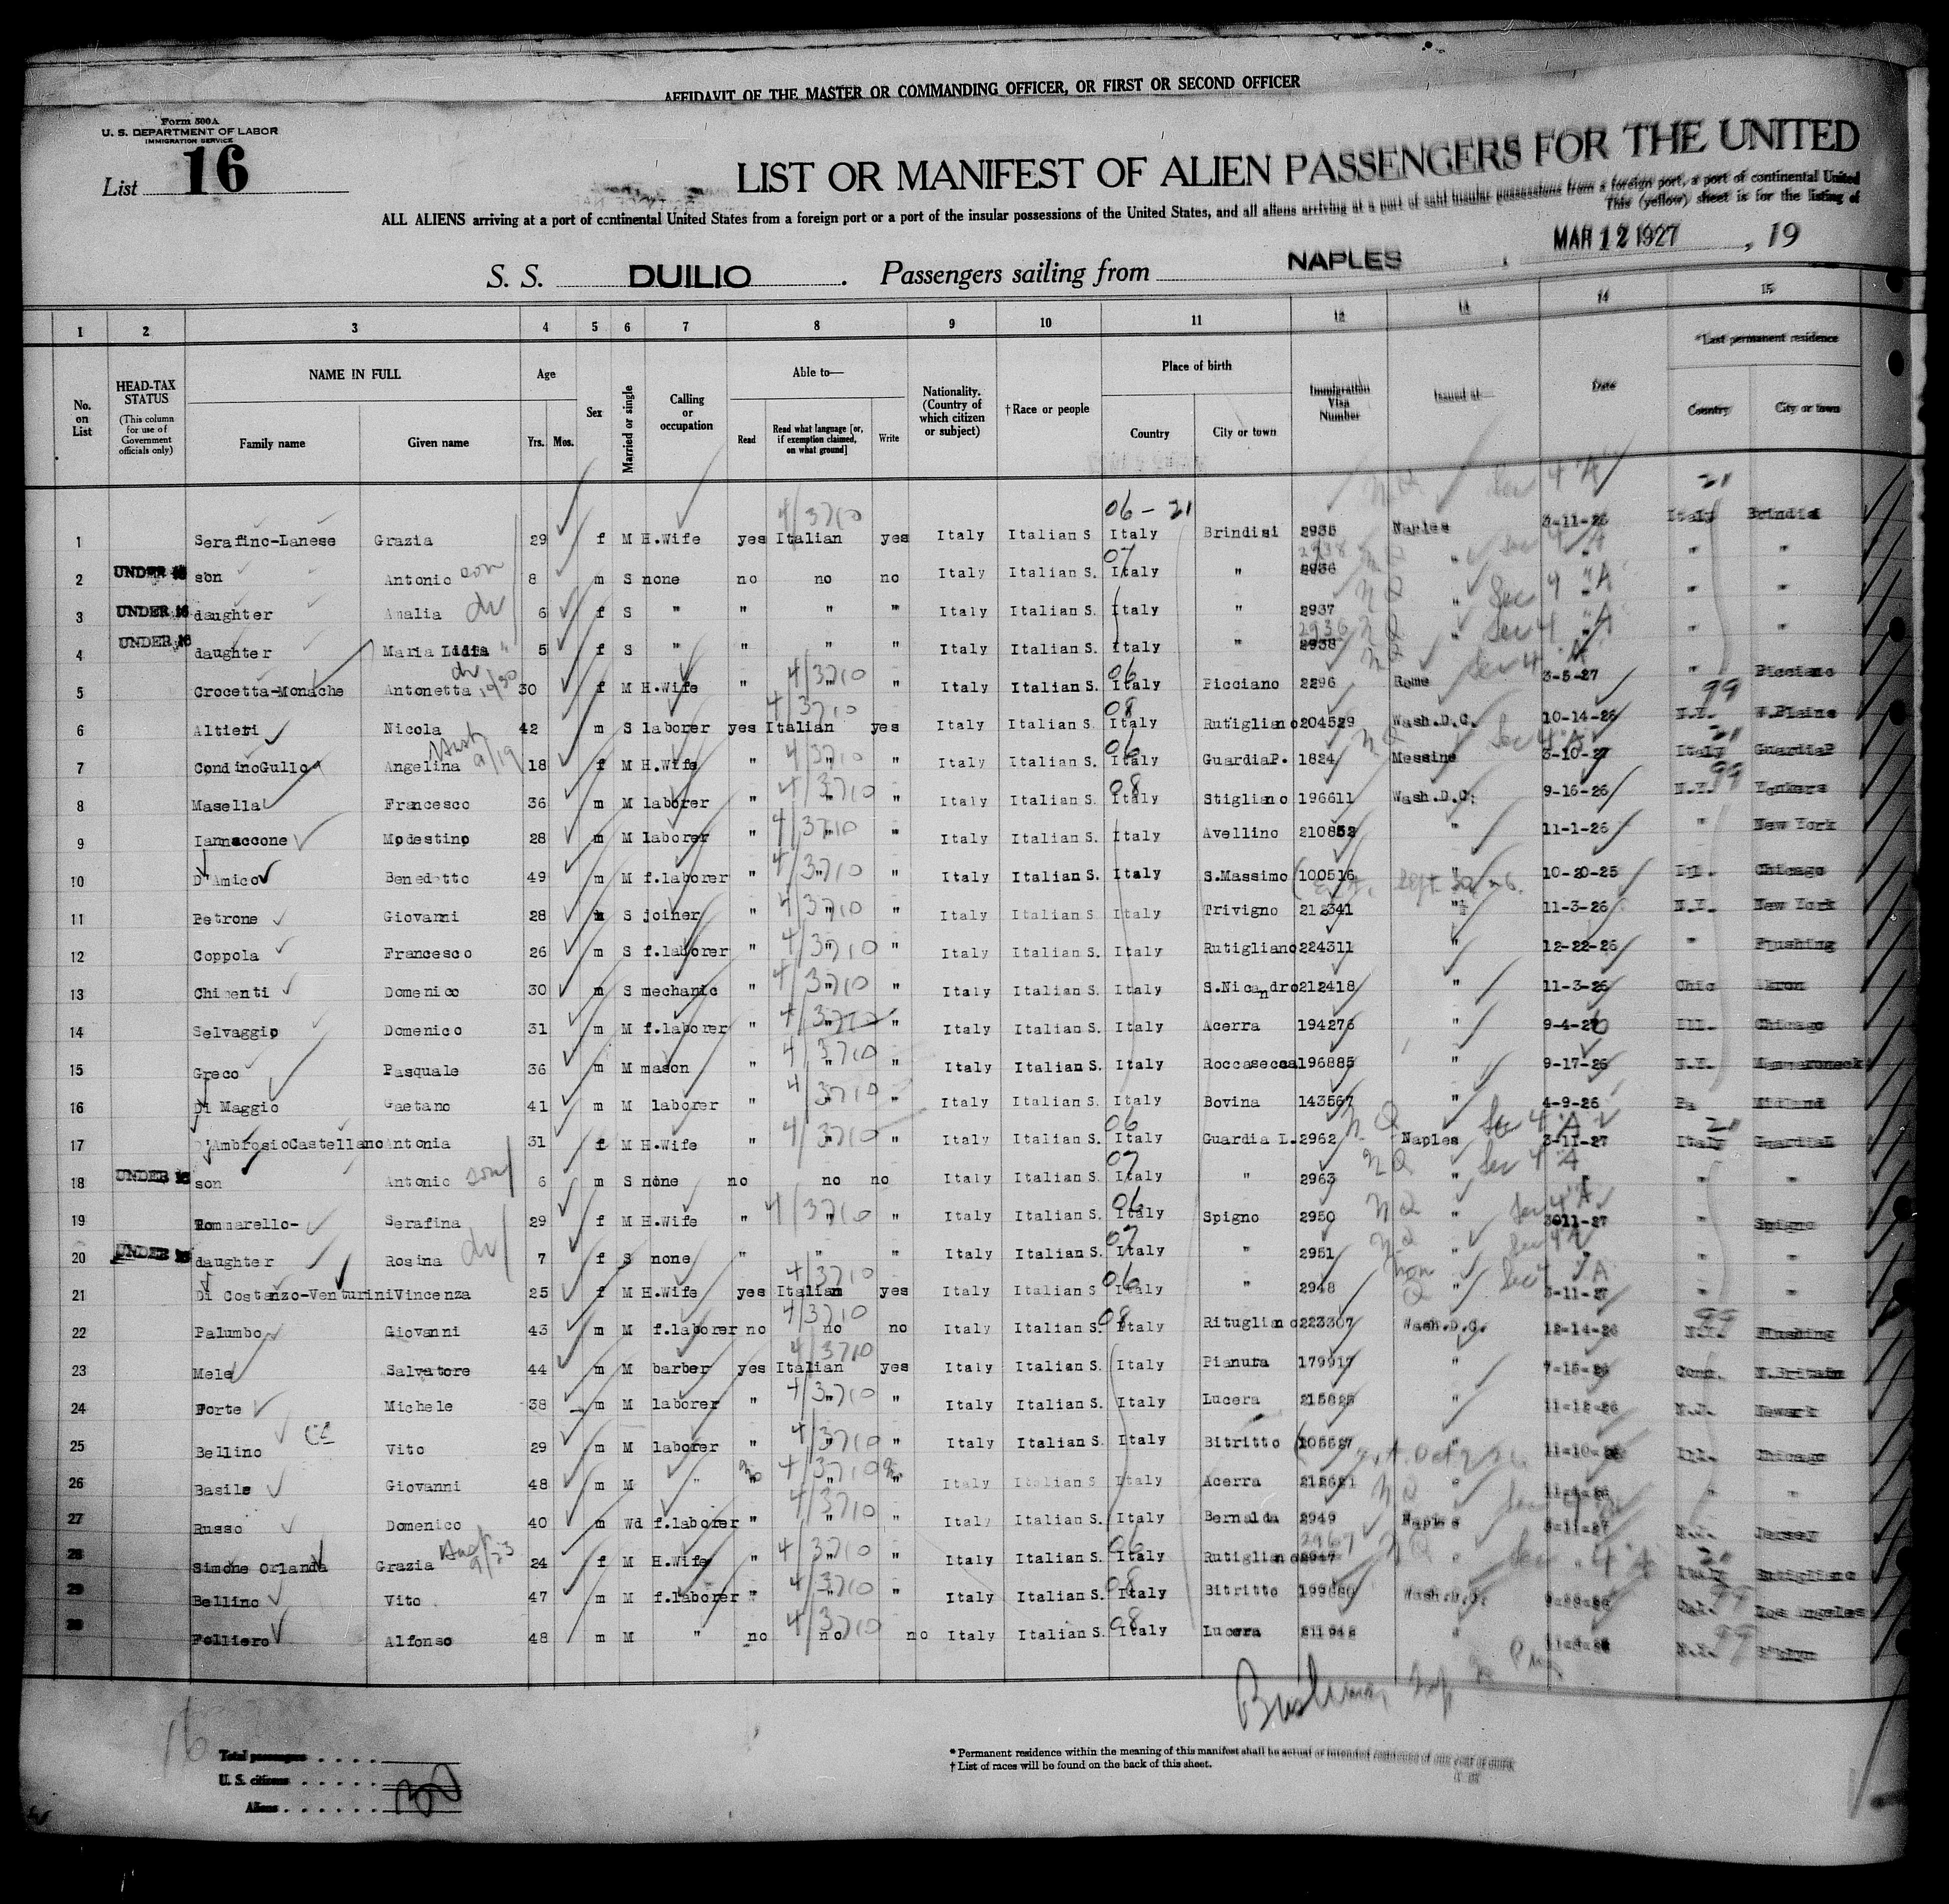 AFFIDAVIT OF THE MASTER OR COMMANDING OFFICER, OR FIRST OR SECOND OFFICER
Form 500A
U. S. DEPARTMENT OF LABOR
IMMIGRATION SERVICE
List 16
LIST OR MANIFEST OF ALIEN PASSENGERS FOR THE UNITED
ALL ALIENS arriving at a port of continental United States from a foreign port or a port of the insular possessions of the United States, and all aliens arriving at a port of said insular possessions from a foreign port, a port of continental United
This (yellow) sheet is for the listing of
S. S. DUILIO . Passengers sailing from NAPLES , MAR 12 1927 , 19
1 2 3 4 5 6 7 8 9 10 11 12 13 14 15
No. on List
HEAD-TAX STATUS (This column for use of Government officials only)
NAME IN FULL Family name Given name
Age Yrs. Mos.
Sex
Married or single
Calling or occupation
Able to— Read Read what language [or, if exemption claimed, on what ground] Write
Nationality. (Country of which citizen or subject)
†Race or people
Place of birth Country City or town
Immigration Visa Number
Issued at—
Date
*Last permanent residence Country City or town
06 - 21 21
1 Serafino-Lanese Grazia 29 f M H.Wife yes Italian yes Italy Italian S Italy Brindisi 2935 Naples 3-11-26 Italy Brindisi
2 UNDER 16 son Antonio son 8 m S none no no no Italy Italian S. Italy " 2936 " " " "
3 UNDER 16 daughter Amalia dv 6 f S " " " " Italy Italian S. Italy " 2937 " " " "
4 UNDER 16 daughter Maria Lidia " 5 f S " " " " Italy Italian S. Italy " 2938 " " " "
5 Crocetta-Monache Antonetta 30 f M H.Wife " " " Italy Italian S. Italy Picciano 2296 Rome 3-5-27 " Picciano
6 Altieri Nicola 42 m S laborer yes Italian yes Italy Italian S. Italy Rutigliano 204529 Wash.D.C. 10-14-26 N.Y. W.Plains
7 CondinoGullo Angelina 18 f M H.Wife " " " Italy Italian S. Italy GuardiaP. 1824 Messina 3-10-27 Italy GuardiaP
8 Masella Francesco 36 m M laborer " " " Italy Italian S. Italy Stigliano 196611 Wash.D.C. 9-16-26 N.Y. Yonkers
9 Iannaccone Modestino 28 m M laborer " " " Italy Italian S. Italy Avellino 210852 " 11-1-26 " New York
10 D'Amico Benedetto 49 m M f.laborer " " " Italy Italian S. Italy S.Massimo 100516 " 10-20-25 Ill. Chicago
11 Petrone Giovanni 28 m S joiner " " " Italy Italian S. Italy Trivigno 212341 " 11-3-26 N.Y. New York
12 Coppola Francesco 26 m S f.laborer " " " Italy Italian S. Italy Rutigliano 224311 " 12-22-26 " Flushing
13 Chimenti Domenico 30 m S mechanic " " " Italy Italian S. Italy S.Nicandro 212418 " 11-3-26 Ohio Akron
14 Selvaggio Domenico 31 m M f.laborer " " " Italy Italian S. Italy Acerra 194276 " 9-4-26 Ill. Chicago
15 Greco Pasquale 36 m M mason " " " Italy Italian S. Italy Roccasecca 196885 " 9-17-26 N.Y. Mamaroneck
16 Di Maggio Gaetano 41 m M laborer " " " Italy Italian S. Italy Bovina 143567 " 4-9-26 Pa Midland
17 D'AmbrosioCastellano Antonia 31 f M H.Wife " " " Italy Italian S. Italy Guardia L. 2962 Naples 3-11-27 Italy GuardiaL
18 UNDER 16 son Antonio son 6 m S none no no no Italy Italian S. Italy " 2963 " " " "
19 Rommarello- Serafina 29 f M H.Wife " " " Italy Italian S. Italy Spigno 2950 " 3-11-27 " Spigno
20 UNDER 16 daughter Rosina dv 7 f S none " " " Italy Italian S. Italy " 2951 " " " "
21 Di Costanzo-Venturini Vincenza 25 f M H.Wife yes Italian yes Italy Italian S. Italy " 2948 " 3-11-27 " "
22 Palumbo Giovanni 43 m M f.laborer no no no Italy Italian S. Italy Ritugliano 223307 Wash.D.C. 12-14-26 N.Y. Flushing
23 Mele Salvatore 44 m M barber yes Italian yes Italy Italian S. Italy Pianura 179917 " 7-15-26 Conn. N.Britain
24 Forte Michele 38 m M laborer " " " Italy Italian S. Italy Lucera 215825 " 11-12-26 N.J. Newark
25 Bellino Vito 29 m M laborer " " " Italy Italian S. Italy Bitritto 105527 " 11-10-26 Ill. Chicago
26 Basile Giovanni 48 m M " no " " Italy Italian S Italy Acerra 212621 " " "
27 Russo Domenico 40 m Wd f.laborer " " " Italy Italian S. Italy Bernalda 2949 Naples 3-11-27 N.J. Jersey
28 Simone Orlanda Grazia 24 f M H.Wife " " " Italy Italian S. Italy Rutigliano 2967 " Italy Rutigliano
29 Bellino Vito 47 m M f.laborer " " " Italy Italian S. Italy Bitritto Wash.D.C. Cal. Los Angeles
30 Folliero Alfonso 48 m M " no no no Italy Italian S. Italy Lucera " N.Y. B'klyn
16
Total passengers
U. S. citizens
Aliens 30
* Permanent residence within the meaning of this manifest shall be actual or intended residence of one year or more.
† List of races will be found on the back of this sheet.